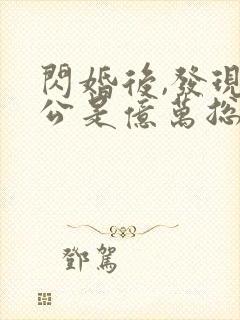 閃婚後,發現
公是億萬總
鄧駕